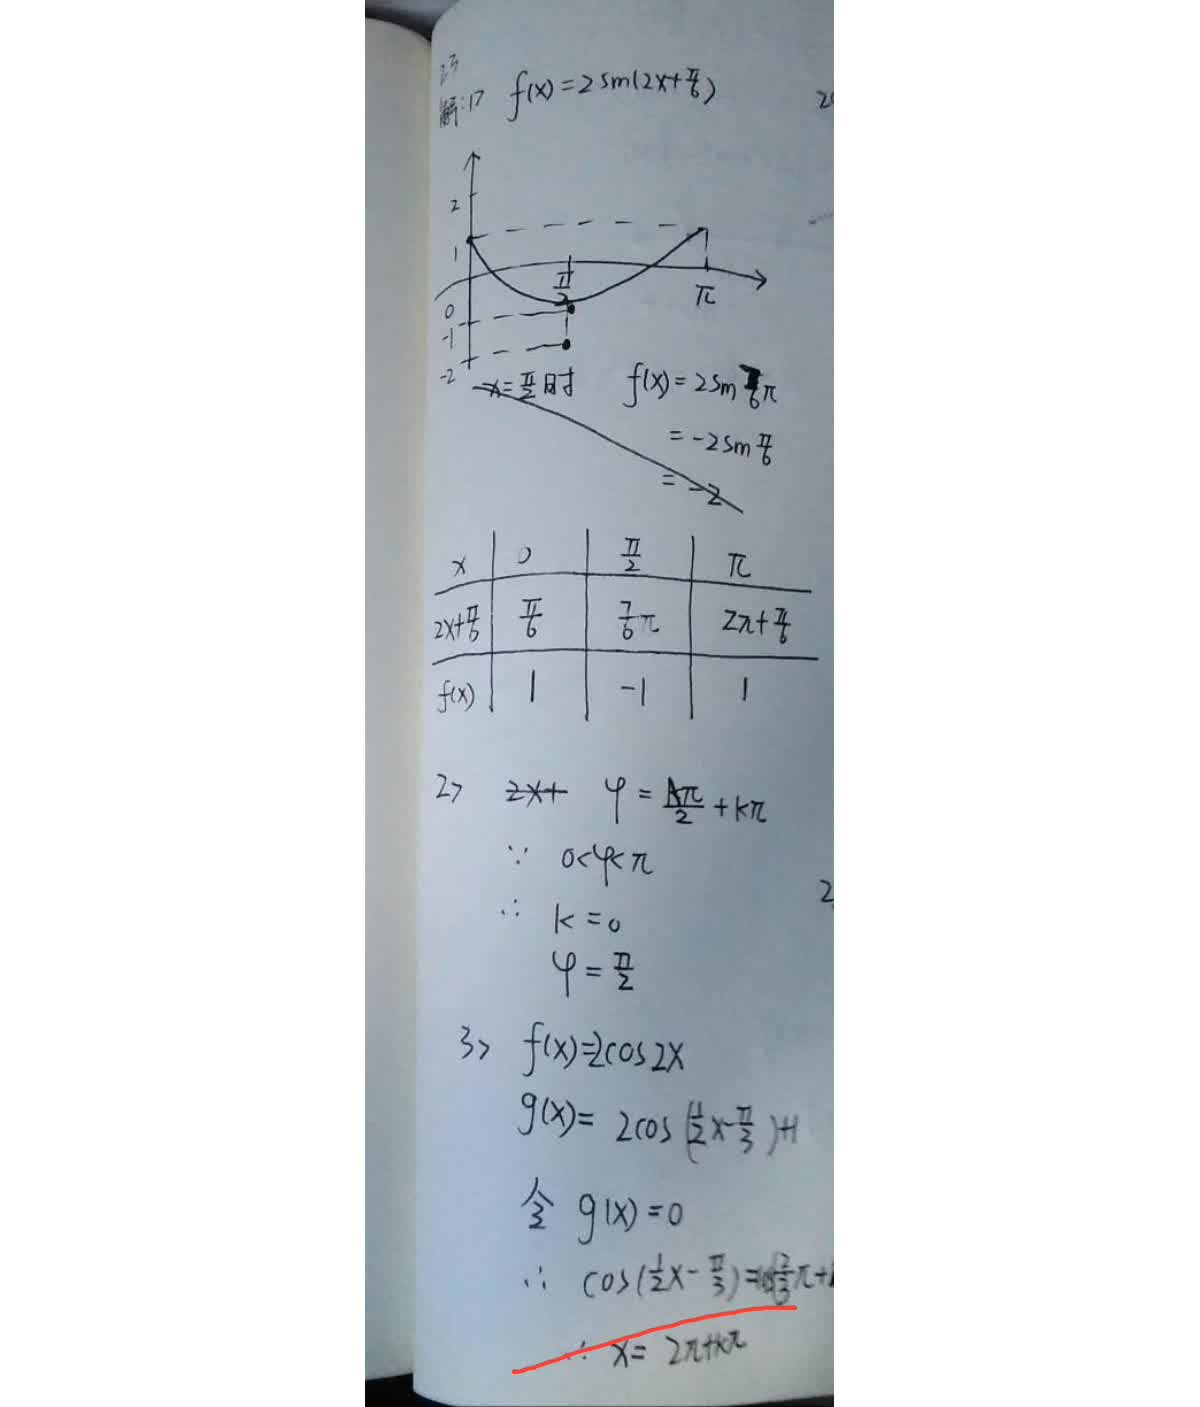 23
解:1> f(x)=2sin(2x+π/6)
2
1
0
-1
-2
π/2
π
x=π/2时 f(x)=2sin 7/6π
=-2sin π/6
=-2
x | 0 | π/2 | π
2x+π/6 | π/6 | 7/6π | 2π+π/6
f(x) | 1 | -1 | 1
2> 2x+ φ=π/2+kπ
∵ 0<φ<π
∴ k=0
φ=π/2
3> f(x)=2cos2x
g(x)= 2cos(1/2x-π/3)+1
令 g(x)=0
∴ cos(1/2x-π/3)=cos 2/3π+
∴ x= 2π+kπ